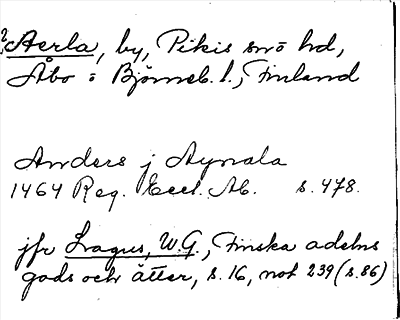 ? Aerla, by, Pikis snö hd,
Åbo o Björneb. l., Finland
Anders j Aynala
1464 Reg. Eccl. Ab. s. 478.
jfr Lagus, W.G., Finska adelns
gods och ätter, s. 16, not 239 (s. 86)